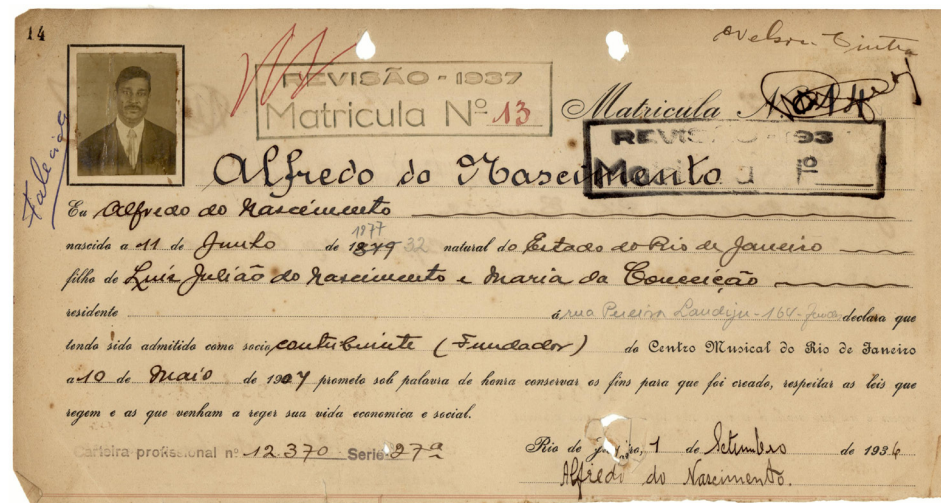 14
Nelson Cintra
REVISÃO - 1937
Matricula Nº 13
Matricula N.
REVISÃO - 193
Matricula Nº
Falecido
Alfredo do Nascimento
Eu Alfredo do Nascimento
nascido a 11 de Junho de 1879 1877 32 natural do Estado do Rio de Janeiro
filho de Luiz Julião do Nascimento e Maria da Conceição
residente á rua Pereira Landim - 164 - declara que
tendo sido admitido como socio contribuinte (Fundador) do Centro Musical do Rio de Janeiro
a 10 de Maio de 1907 prometo sob palavra de honra conservar os fins para que foi creado, respeitar as leis que
regem e as que venham a reger sua vida economica e social.
Carteira profissional nº 12.370 Serie 27ª
Rio de Janeiro, 1 de Setembro de 1936
Alfredo do Nascimento.